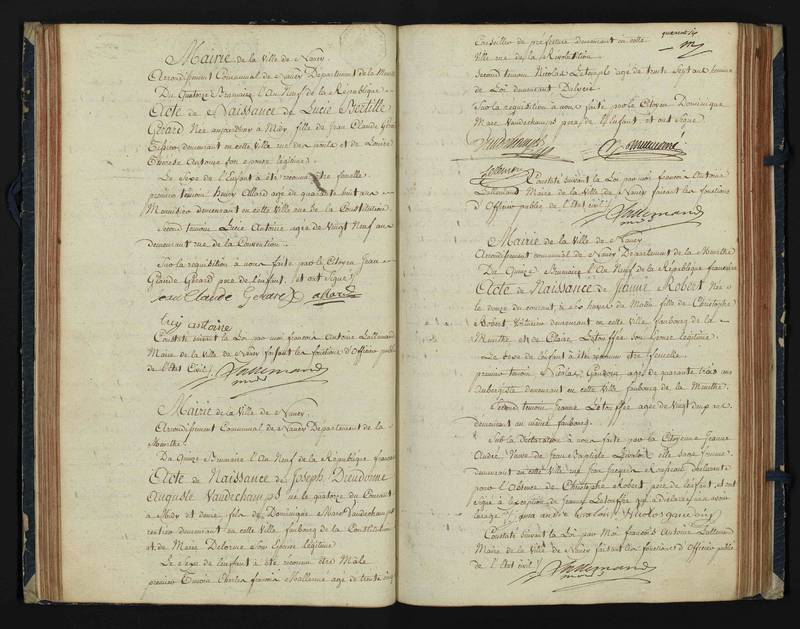 Mairie de la Ville de Nancy
Arrondissement Communal de Nancy Departement de la Meurthe
Du Quatorze Brumaire l'An Neuf de la République
Acte de Naissance de Lucie
Gérard Née aujourdhuy à Midy fille de Jean Claude Gérard
demeurant en cette Ville rue des et de Louise
Therese Antoine son epouse légitime.
Le Sexe de l'Enfant à été reconnu être femelle
premier temoin henry Allard agé de quarante huit ans
Menuisier demeurant en cette Ville rue de la Constitution
Second temoin Lucie Antoine agée de Vingt Neuf ans
demeurant rue de la Convention.
Sur la requisition à nous faite par le Citoyen Jean
Claude Gérard pere de l'enfant, et ont Signé
Jean Claude Gerard allard
lucy antoine
Constaté suivant la Loi par moi françois Antoine Lallemand
Maire de la Ville de Nancy faisant les fonctions d'Officier public
de l'Etat Civil
Lallemand
Mairie de la Ville de Nancy.
Arrondissement Communal de Nancy Departement de la
Meurthe.
Du Quinze Brumaire l'An Neuf de la République française
Acte de Naissance de Joseph Dieudonné
Auguste Vaudechamps né le quatorze du Courant
à Midy et demie, fils de Dominique Marc Vaudechamps
rentier demeurant en cette Ville faubourg de la Constitution
et de Marie Delorme son Epouse légitime
Le Sexe de l'enfant à été reconnu être Male
premier Temoin Charles françois Mallarmé agé de trente
Conseiller de préfecture demeurant en cette
Ville rue de la Révolution.
Second temoin Nicolas agé de trente Sept ans homme
de Loi demeurant
Sur la requisition à nous faite par le Citoyen Dominique
Marc Vaudechamps pere de l'Enfant. et ont Signé
Vaudechamps
Constaté suivant la Loi par moi françois Antoine
Lallemand Maire de la Ville de Nancy faisant les fonctions
d'Officier public de l'Etat civil
Lallemand
Mairie de la Ville de Nancy
Arrondissement communal de Nancy Departement de la Meurthe
Du Quinze Brumaire l'An Neuf de la République française
Acte de Naissance de Jeanne Robert Née
le douze du courant, à Six heures du Matin fille de Christophe
Robert Voiturier demeurant en cette Ville, faubourg de la
Meurthe et de Claire Létouffée son Epouse légitime.
Le Sexe de l'enfant à été reconnu être femelle
premier temoin Nicolas agé de quarante trois ans
Aubergiste demeurant en cette Ville faubourg de la Meurthe.
Second temoin Jeanne Létouffée agée de Vingt deux ans
demeurant au même faubourg.
Sur la declaration à nous faite par la Citoyenne Jeanne
André Veuve de Jean Baptiste elle sage femme
demeurant en cette Ville rue Jean Jacques Rousseau déclarante
pour l'absence de Christophe Robert, pere de l'enfant, et ont
Signé à l'exception de Jeanne Létouffée qui a déclaré ne savoir
Constaté suivant la Loi par Moi françois Antoine Lallemand
Maire de la Ville de Nancy faisant les fonctions d'Officier public
de l'Etat civil
Lallemand